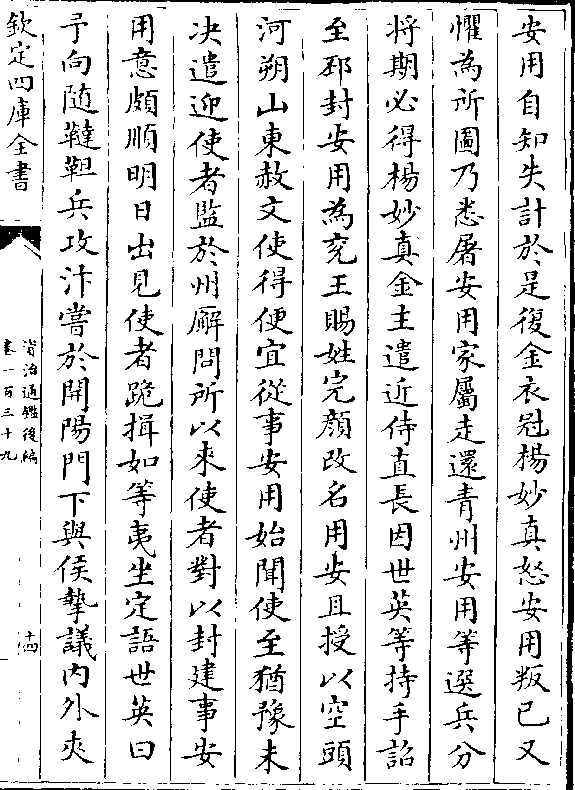 安用自知失計於是復金衣冠楊妙真怒安用叛已又
懼為所圖乃悉屠安用家屬走還青州安用等選兵分
将期必得楊妙真金主遣近侍直長因世英等持手詔
至邳封安用為兖王賜姓完顔改名用安且授以空頭
河朔山東赦文使得便宜從事安用始聞使至猶豫未
决遣迎使者監於州廨問所以來使者對以封建事安
用意頗順明日出見使者跪揖如等夷坐定語世英曰
予向随韃靼兵攻汴嘗於開陽門下與侯摯議内外夾
欽定四庫全書
資治通鑑後編
卷一百三十九
十四